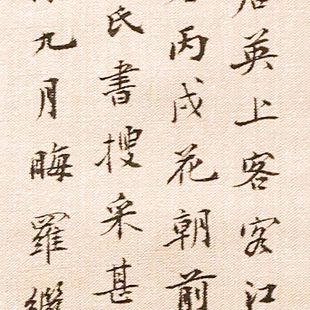 英上客客江
丙戌花朝前
氏書搜采甚
九月晦羅繼